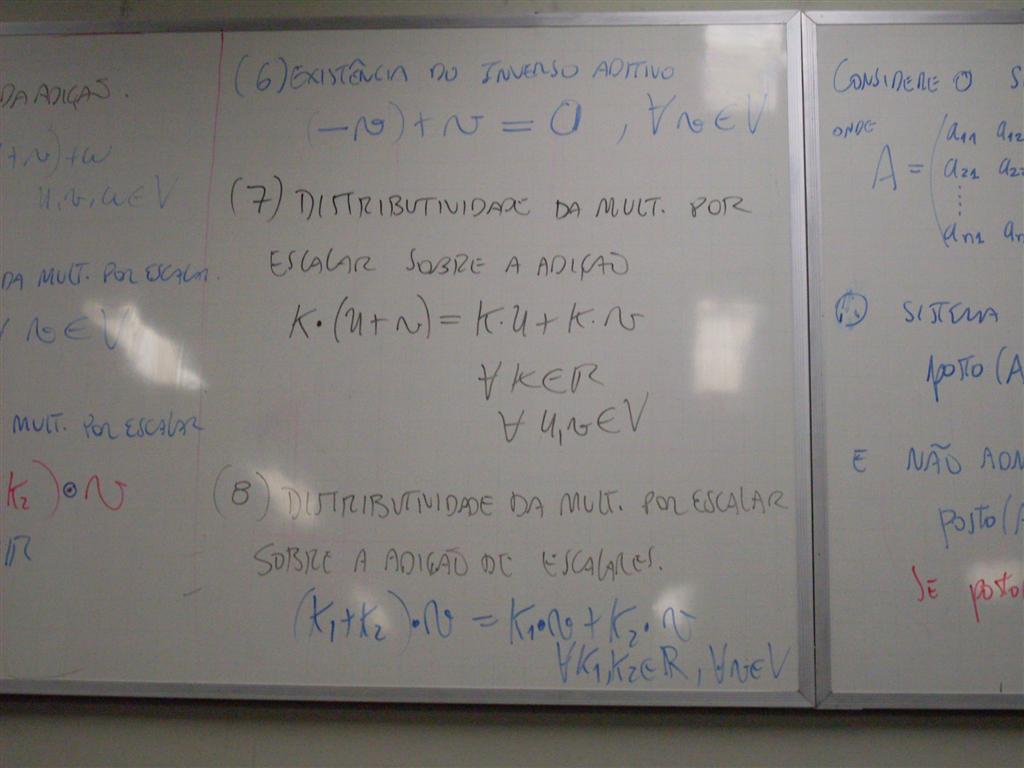 DA ADIÇÃO.
+v)+w
u,v,w∈V
DA MULT. POR ESCALAR.
v∈V
MULT. POR ESCALAR
k₂)⊙v
ℝ
(6) EXISTÊNCIA DO INVERSO ADITIVO
(-v)+v = 0 , ∀v∈V
(7) DISTRIBUTIVIDADE DA MULT. POR
ESCALAR SOBRE A ADIÇÃO
K·(u+v)=K·u+K·v
∀K∈ℝ
∀u,v∈V
(8) DISTRIBUTIVIDADE DA MULT. POR ESCALAR
SOBRE A ADIÇÃO DE ESCALARES.
(k₁+k₂)·v = k₁·v+k₂·v
∀k₁,k₂∈ℝ, ∀v∈V
CONSIDERE O S
ONDE
A = (a₁₁ a₁₂
a₂₁ a₂₂
⋮
aₙ₁ aₙ
SISTEMA
posto(A
E NÃO ADM
posto(A
SE posto